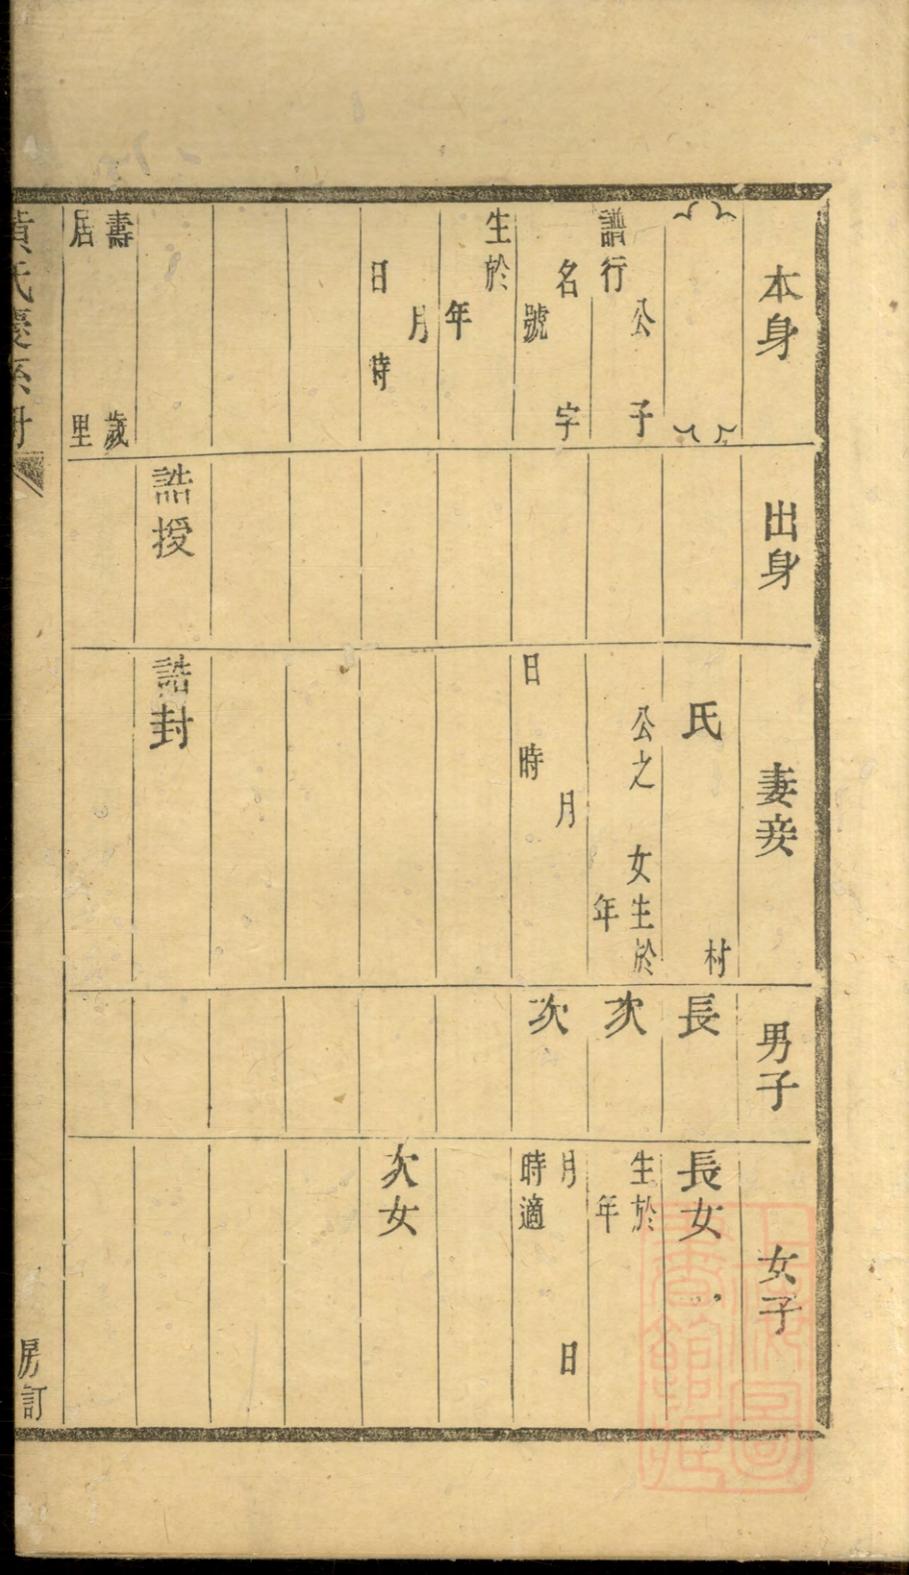 本身
譜行 公子
名字
號
生於
年
月
日時
壽歲
居里
出身
誥授
妻妾
氏村
公之女生於
年
月
日時
誥封
男子
長
次
次
女子
長女
生於
年
月日
時適
次女
黃氏慶系冊
房訂
上海圖書館藏